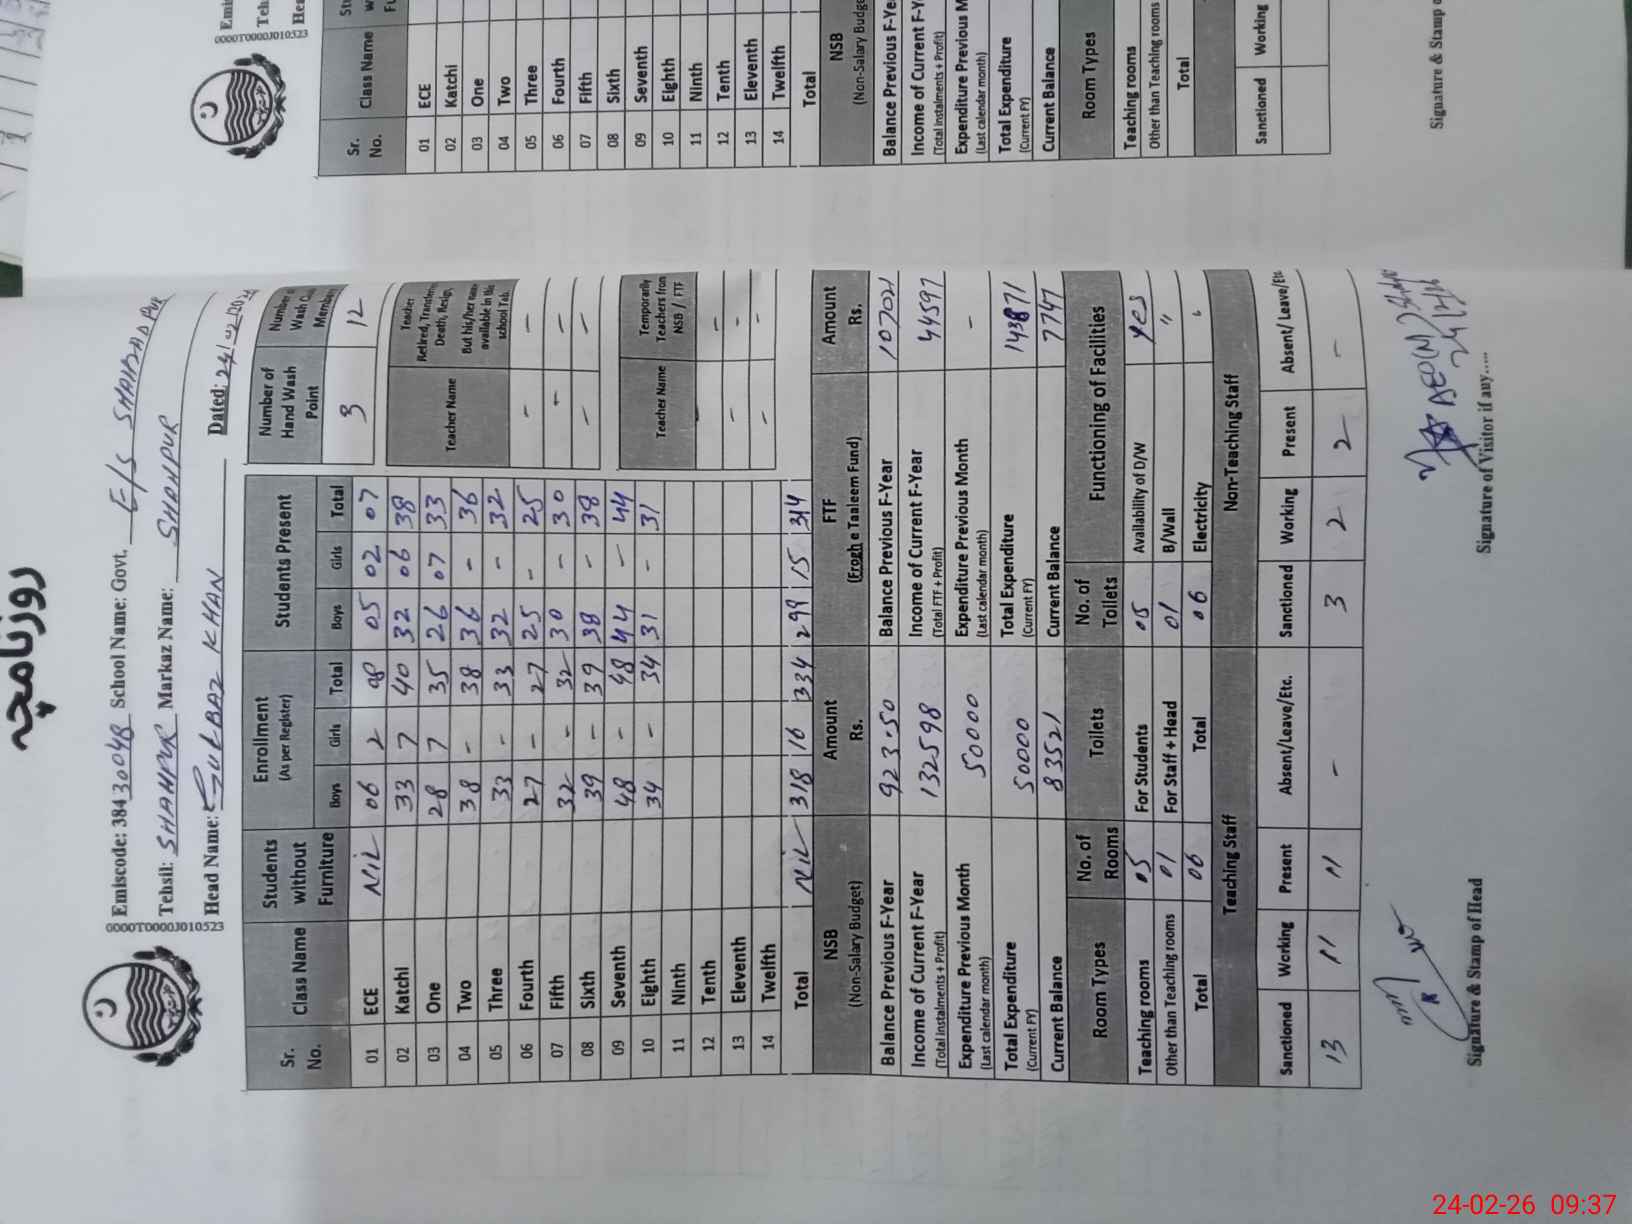 روزنامچہ
Emiscode: 38430048 School Name: Govt. E/S SHAHZADPUR
Tehsil: SHAHPUR Markaz Name: SHAHPUR
Head Name: GULBAZ KHAN Dated: 24/02/2026
0000T0000J010523
Sr. No. Class Name Students without Furniture Enrollment (As per Register) Students Present
Boys Girls Total Boys Girls Total
01 ECE NIL 06 2 08 05 02 07
02 Katchi 33 7 40 32 06 38
03 One 28 7 35 26 07 33
04 Two 38 - 38 36 - 36
05 Three 33 - 33 32 - 32
06 Fourth 27 - 27 25 - 25
07 Fifth 32 - 32 30 - 30
08 Sixth 39 - 39 38 - 38
09 Seventh 48 - 48 44 - 44
10 Eighth 34 - 34 31 - 31
11 Ninth
12 Tenth
13 Eleventh
14 Twelfth
Total NIL 318 16 334 299 15 314
Number of Hand Wash Point Number of Wash Members
3 12
Teacher Name Teacher Retired, Transfer, Death, Resign, But his/her name available in the school Tab.
- -
- -
- -
Teacher Name Temporarily Teachers from NSB / FTF
- -
- -
- -
NSB (Non-Salary Budget) Amount Rs. FTF (Frogh e Taaleem Fund) Amount Rs.
Balance Previous F-Year 923.50 Balance Previous F-Year 107021
Income of Current F-Year (Total Instalments + Profit) 132598 Income of Current F-Year (Total FTF + Profit) 44597
Expenditure Previous Month (Last calendar month) 50000 Expenditure Previous Month (Last calendar month) -
Total Expenditure (Current FY) 50000 Total Expenditure (Current FY) 143871
Current Balance 83521 Current Balance 7747
Room Types No. of Rooms Toilets No. of Toilets Functioning of Facilities
Teaching rooms 05 For Students 05 Availability of D/W Yes
Other than Teaching rooms 01 For Staff + Head 01 B/Wall "
Total 06 Total 06 Electricity "
Teaching Staff Non-Teaching Staff
Sanctioned Working Present Absent/Leave/Etc. Sanctioned Working Present Absent/Leave/Etc
13 11 11 - 3 2 2 -
AEO(M)
Signature & Stamp of Head Signature of Visitor if any.....
Emis
Teh
Hea
0000T0000J010523
Sr. No. Class Name
01 ECE
02 Katchi
03 One
04 Two
05 Three
06 Fourth
07 Fifth
08 Sixth
09 Seventh
10 Eighth
11 Ninth
12 Tenth
13 Eleventh
14 Twelfth
Total
NSB (Non-Salary Budge
Balance Previous F-Yea
Income of Current F-Y (Total Instalments + Profit)
Expenditure Previous M (Last calendar month)
Total Expenditure (Current FY)
Current Balance
Room Types
Teaching rooms
Other than Teaching rooms
Total
Sanctioned Working
Signature & Stamp o
24-02-26 09:37